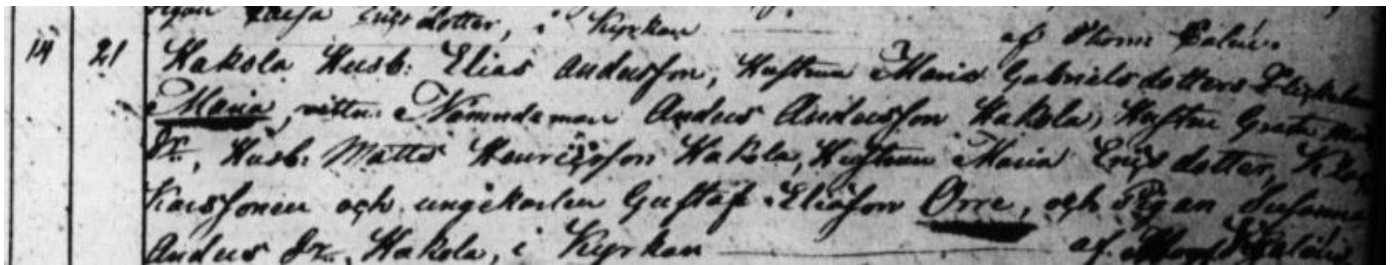 Pigan Caisa Erics dotter, i Kyrkan af Thom: Salén.
14 21 Hakola Husb: Elias Andersson, Hustrun Maria Gabrielsdotters Flickebarn
Maria, vittn: Nämndeman Anders Andersson Hakola, Hustru Greta
Dr., Husb: Matts Henricsson Hakola, Hustrun Maria Erics dotter,
och ungekarlen Gustaf Eliasson Orre, och Pigan Susanna
Anders Dr. Hakola, i Kyrkan af